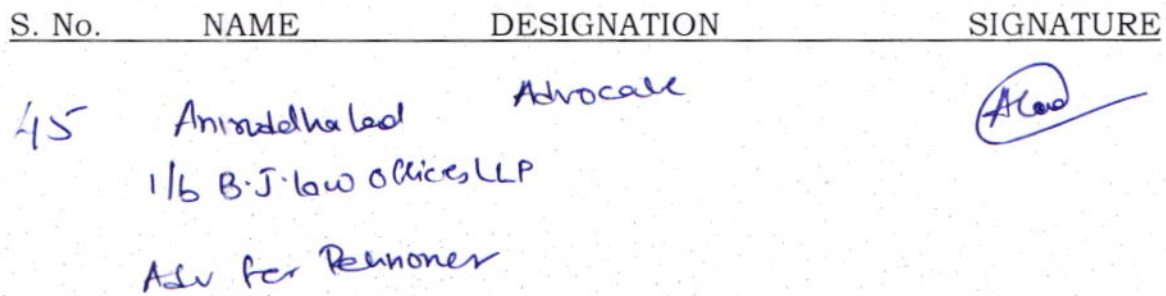 S. No. NAME DESIGNATION SIGNATURE
45 Aniruddha Lad Advocate ALad
i/b B.J. Law Offices LLP
Adv for Petitioner